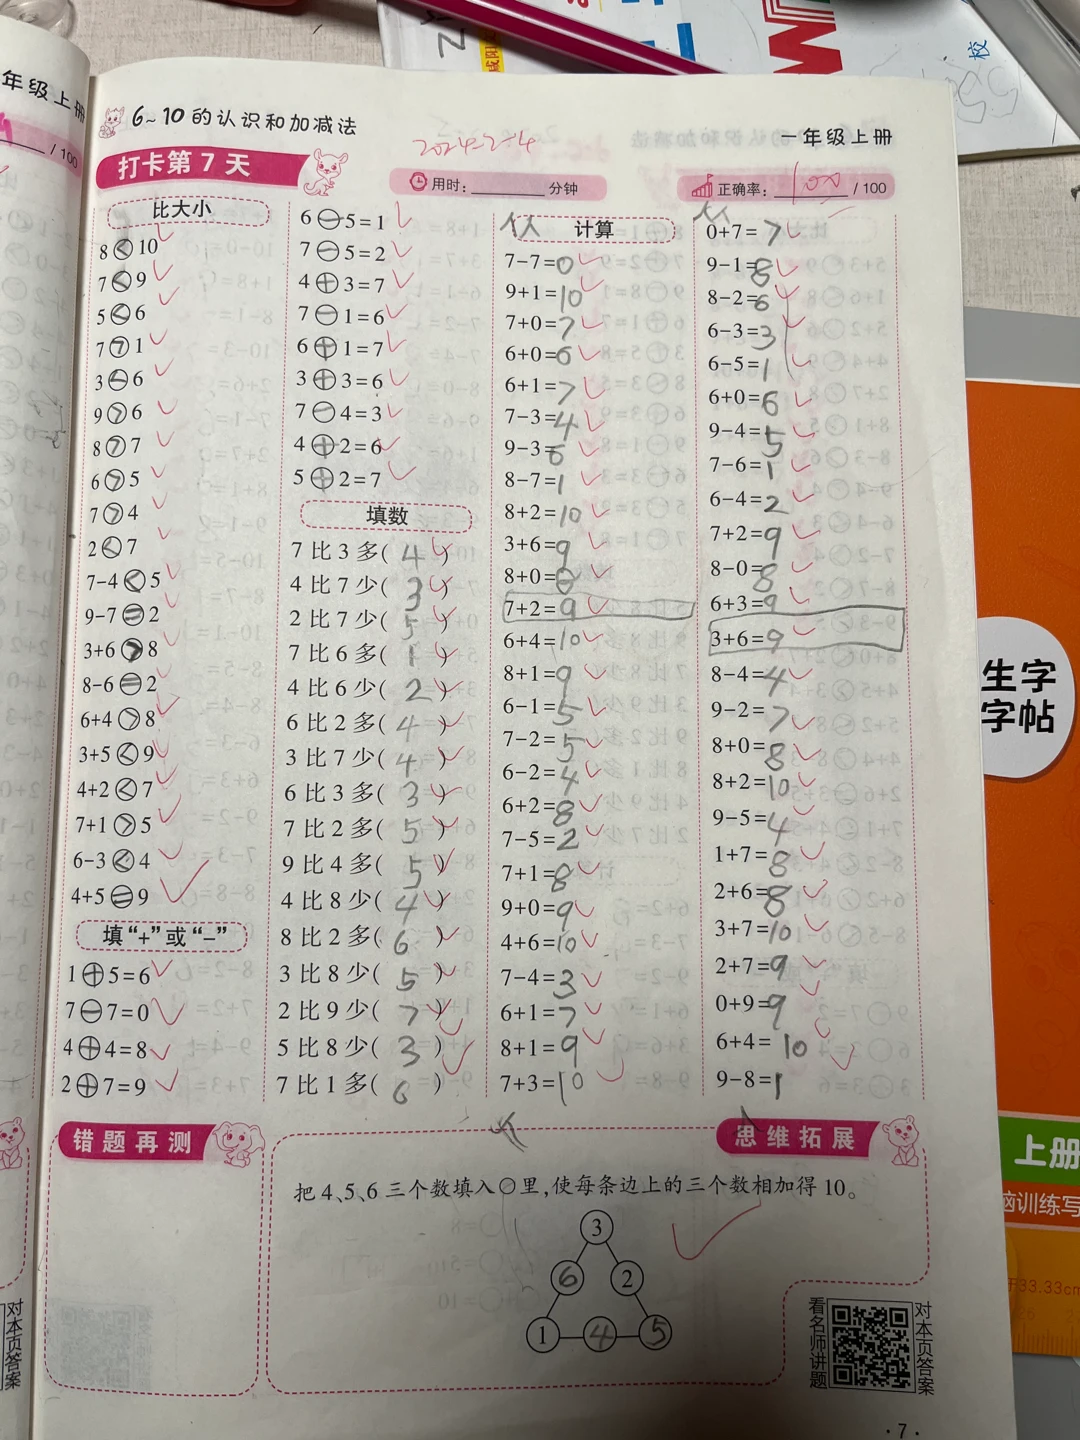 年级上册
/ 100
6~10的认识和加减法
一年级上册
打卡第7天
2024-2-4
用时: 分钟
正确率: 100 / 100
比大小
8<10
7<9
5<6
7>1
3<6
9>6
8>7
6>5
7>4
2<7
7-4<5
9-7=2
3+6>8
8-6=2
6+4>8
3+5<9
4+2<7
7+1>5
6-3<4
4+5=9
填“+”或“-”
1+5=6
7-7=0
4+4=8
2+7=9
6-5=1
7-5=2
4+3=7
7-1=6
6+1=7
3+3=6
7-4=3
4+2=6
5+2=7
填数
7比3多(4)
4比7少(3)
2比7少(5)
7比6多(1)
4比6少(2)
6比2多(4)
3比7少(4)
6比3多(3)
7比2多(5)
9比4多(5)
4比8少(4)
8比2多(6)
3比8少(5)
2比9少(7)
5比8少(3)
7比1多(6)
计算
7-7=0
9+1=10
7+0=7
6+0=6
6+1=7
7-3=4
9-3=6
8-7=1
8+2=10
3+6=9
8+0=8
7+2=9
6+4=10
8+1=9
6-1=5
7-2=5
6-2=4
6+2=8
7-5=2
7+1=8
9+0=9
4+6=10
7-4=3
6+1=7
8+1=9
7+3=10
0+7=7
9-1=8
8-2=6
6-3=3
6-5=1
6+0=6
9-4=5
7-6=1
6-4=2
7+2=9
8-0=8
6+3=9
3+6=9
8-4=4
9-2=7
8+0=8
8+2=10
9-5=4
1+7=8
2+6=8
3+7=10
2+7=9
0+9=9
6+4=10
9-8=1
错题再测
思维拓展
把4、5、6三个数填入○里,使每条边上的三个数相加得10。
3
6 2
1 4 5
看名师讲题
对本页答案
·7·
对本页答案
校
生字
字帖
上册
脑训练写
33.33cm